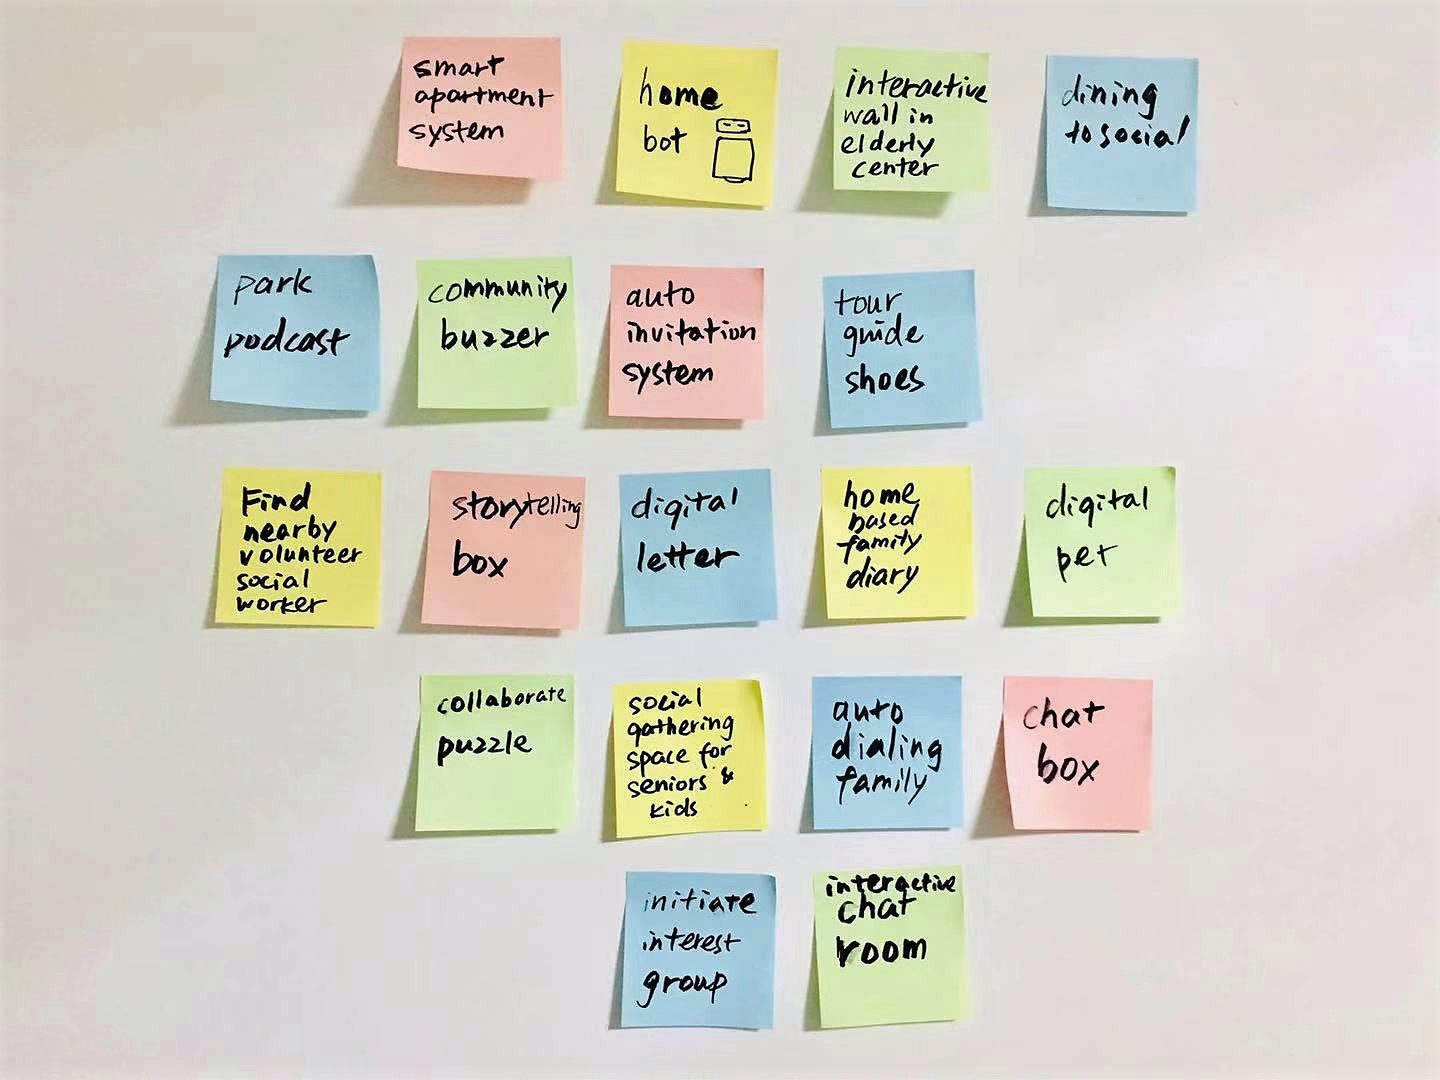 smart
apartment
system
home
bot
interactive
wall in
elderly
center
dining
to social
park
podcast
community
buzzer
auto
invitation
system
tour
guide
shoes
Find
nearby
volunteer
social
worker
storytelling
box
digital
letter
home
based
family
diary
digital
pet
collaborate
puzzle
social
gathering
space for
seniors &
kids
auto
dialing
family
chat
box
initiate
interest
group
interactive
chat
room